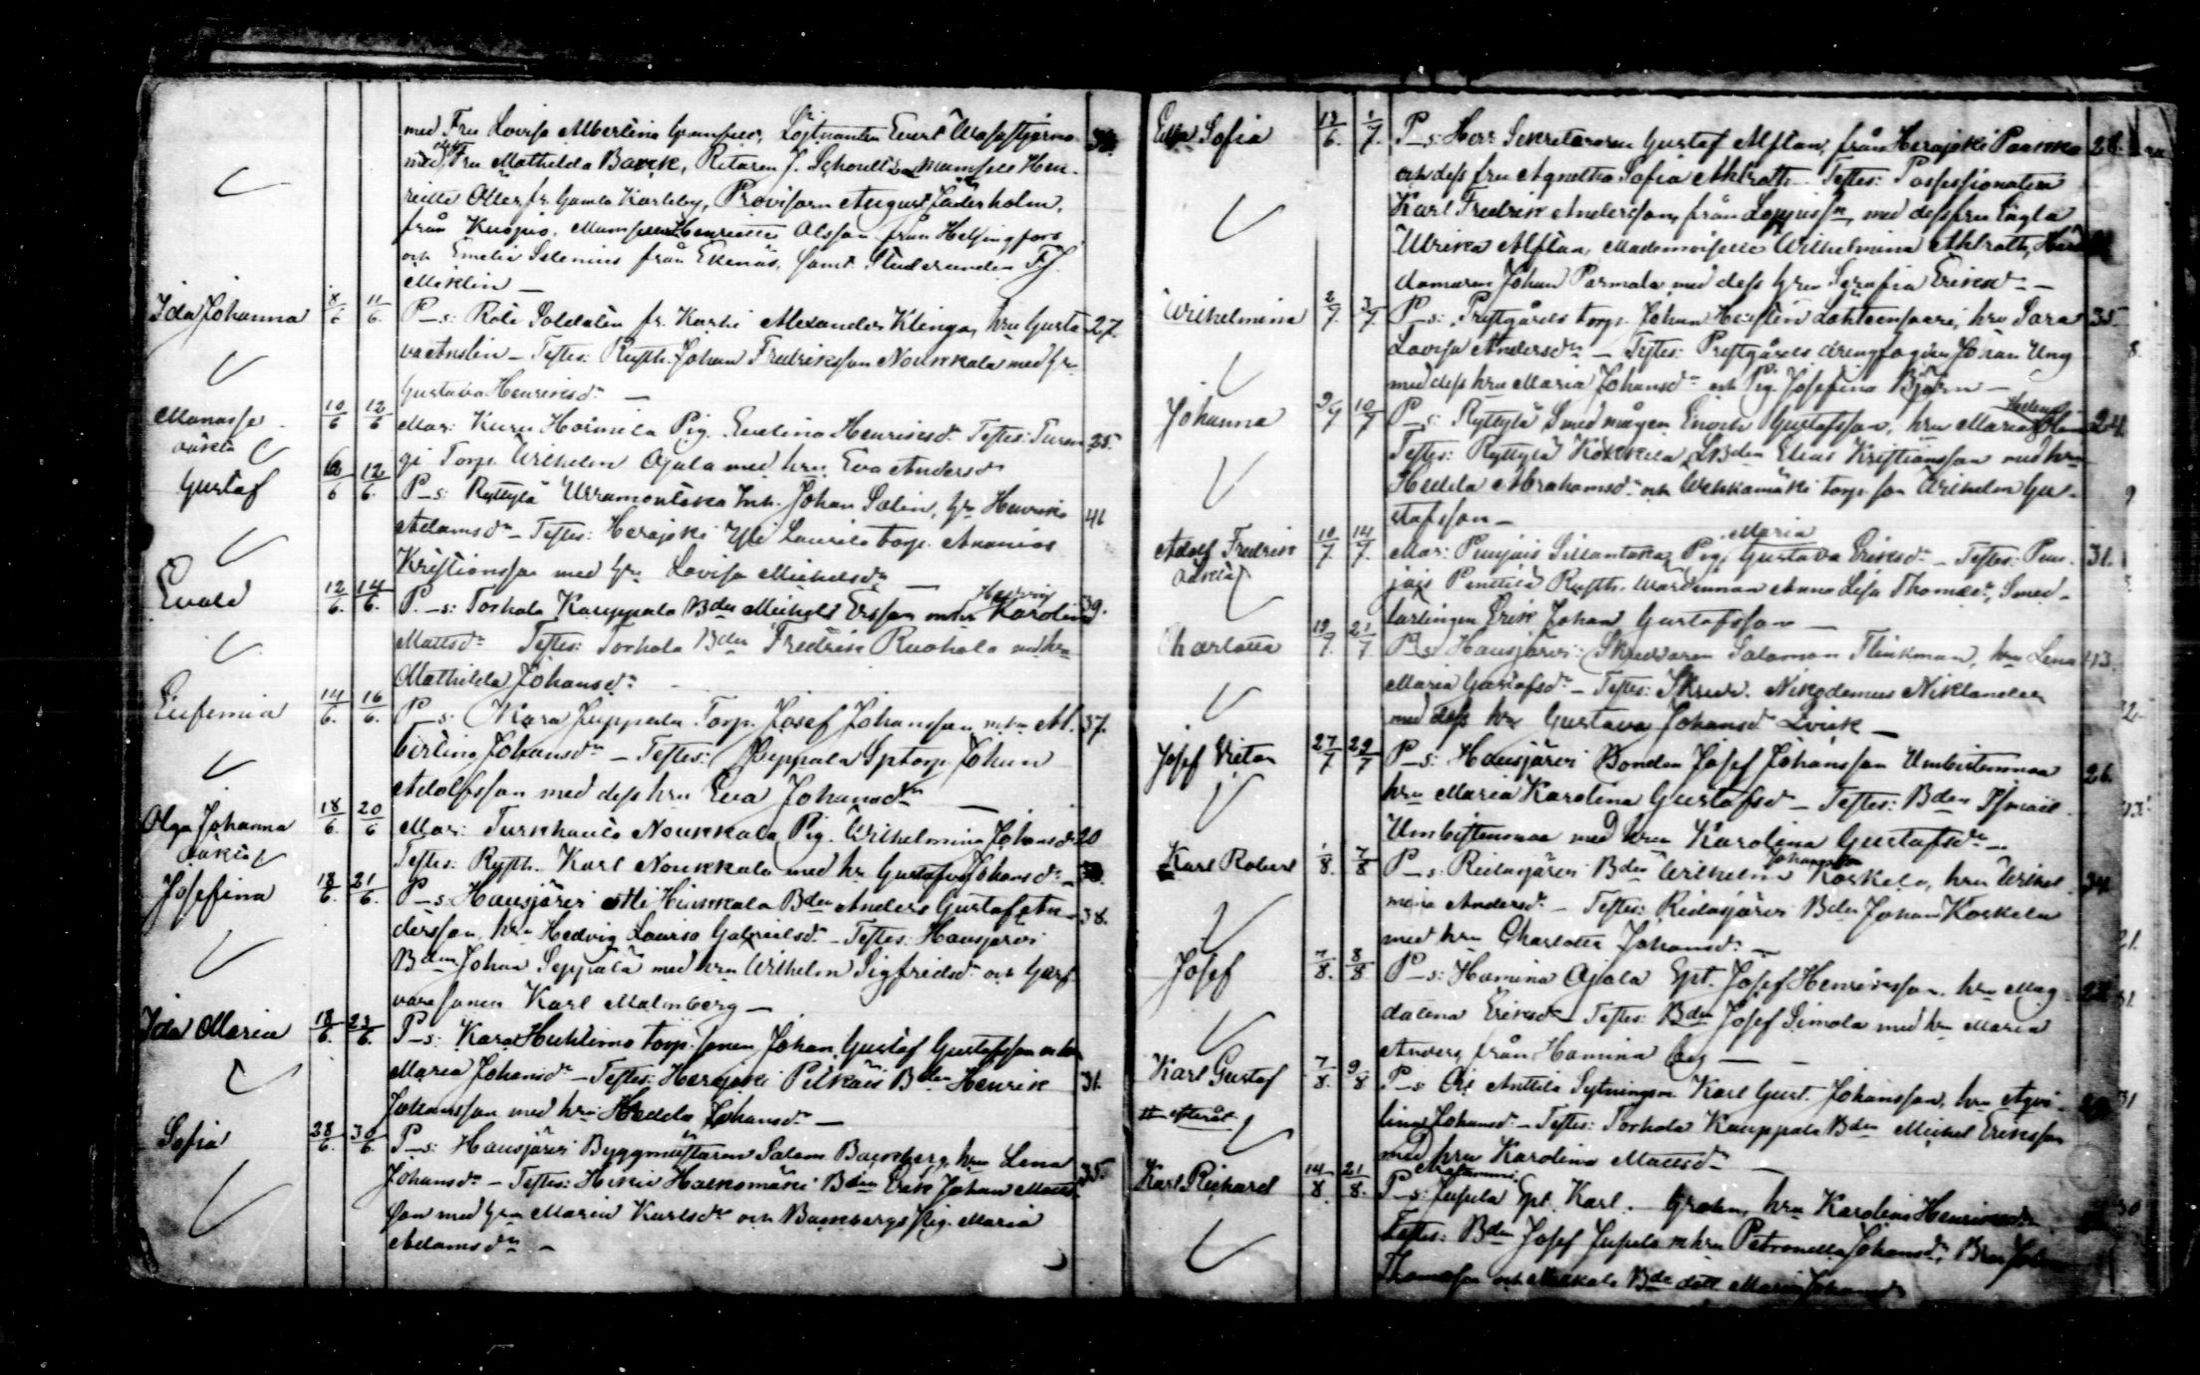 med Fru Lovisa Albertina Löjtnanten Evert Wasastjerna 32.
med Fru Mathilda Barck, Ritaren J. Schoultz Mamsell Hen-
riette fr. Gamla Karleby, Provisorn August Jäderholm,
från Kuopio, Mamsell Henriette Olsson från Helsingfors
och Emelie Selenius från Ekenäs, samt Studeranden F.J.
Miklin —
Ida Johanna 8/6 11/6. P–s: Rote Soldaten fr. Karhi Alexander Klinga, hru Gusta 27.
va — Testes: Rusth. Johan Fredriksson Noukkala med hr
Gustava Henriksdr —
Manasse 10/6 12/6 Mor: Kuru Hoimila Pig. Evelina Henriksdr Testes: 25.
oäkta
gi Torp. Wilhelm Ojala med hru Eva Andersdr
Gustaf 12/6 12/6. P–s: Ryttylä Inh. Johan Salin, hr Henrika 41
Adamsdr — Testes: Herajoki Yli Laurila torp. Ananias
Kristiansson med hru Lovisa Michelsdr —
Evald 12/6. 14/6. P.–s: Torhola Kauppala Bden Michel Ersson Hedvig Karolina 39.
Mattsdr Testes: Torhola Bden Fredrik Ruohola med hru
Mathilda Johansdr
Eufemia 14/6. 16/6. P–s: Kara Juppala Torp. Josef Johansson m. hu Al- 37.
bertina Johansdr — Testes: Sptorp. Johan
Adolfsson med dess hru Eva Johansdr —
Olga Johanna 18/6. 20/6 Mor: Turkhauta Noukkala Pig. Wilhelmina Johansdr 20
oäkta
Testes: Rusth. Karl Noukkala med hr Gustafva Johansdr —
Josefina 18/6. 21/6. P–s: Hausjärvi Ali Hinkkala Bden Anders Gustaf An- 38.
dersson, hru Hedvig Lovisa Gabrielsdr — Testes: Hausjärvi
Bden Johan Seppälä med hru Wilhelm Sigfridsdr och Garf-
varesonen Karl Malmberg —
Ida Maria 18/6. 23/6. P–s: Kara Huhtimo torp. sonen Johan Gustaf Gustafsson
Maria Johansdr — Testes: Herajoki Pitkäis Bden Henrik 31.
Johansson med hru Hedda Johansdr —
Sofia 28/6. 30/6. P–s: Hausjärvi Byggmästaren Salom Bamberg, hru Lena 35.
Johansdr — Testes: Hikiä Bden Erik Johan Matts-
son med hru Maria Karlsdr och Bambergs Pig. Maria
Adamsdr —
Sofia 13/6. 1/7. P–s: Herr Sekreteraren Gustaf Alftan, från Herajoki Paavola 28.
och dess fru Agnetha Sofia Ahlroth — Testes: Possessionaten
Karl Fredrik Andersson, från med dess fru Lägta
Ulrika Alftan, Mademoiselle Wilhelmina Ahlroth,
damaren Johan Parmala med dess hru Serafia Eriksdr —
Wilhelmina 2/7. 3/7 P–s: Prestgårds torp. Johan Lahteensaari, hru Sara 35.
Lovisa Andersdr — Testes: Prestgårds drengfogden Johan Ung
med dess hru Maria Johansdr och Pig. Josefina Björn —
Johanna 9/7 10/7 P–s: Ryttylä Smedmågen Enoch Gustafsson, hru Maria Helena 24.
Testes: Ryttylä Bden Elias Kristiansson med hru
Hedda Abrahamsdr och torp. son Wilhelm Gu-
stafsson —
Adolf Fredrik 10/7. 14/7. Mor: Punjais Sillantaka Pig. Maria Gustava Eriksdr — Testes: Pun- 31.
oäkta
jais Penttilä Rusth. Wärdinnan Anna Lisa Thomasdr, Smed-
lärlingen Erik Johan Gustafsson —
Charlotta 19/7. 21/7 P–s: Hausjärvi Skräddaren Salomon Flinkman, hru Lena 43.
Maria Gustafsdr — Testes: Skrädd. Nikodemus Niklander
med dess hru Gustava Johansdr Lvick —
Josef Viktor 27/7 29/7 P–s: Hausjärvi Bonden Josef Johansson Umbistenmaa 26.
hru Maria Karolina Gustafsdr — Testes: Bden Ismael
Umbistenmaa med hru Karolina Gustafsdr —
Karl Robert 1/8. 7/8 P–s: Ridasjärvi Bden Wilhelm Johansson Koskela, hru Wilhel- 34.
mina Andersdr — Testes: Ridasjärvi Bden Johan Koskela
med hru Charlotta Johansdr —
Josef 7/8. 8/8 P–s: Hamina Ojala Spt. Josef Henriksson, hru Mag-
dalena Eriksdr — Testes: Bden Josef Simola med hru Maria
Anders, från Hamina by —
Karl Gustaf 7/8. 9/8 P–s: Oi Anttila Sytningsm. Karl Gust. Johansson, hru
lina Johansdr — Testes: Torhola Kauppala Bden Michel Eriksson
med hru Karolina Mattsdr —
Karl Richard 14/8. 21/8. P–s: Jussila Spt. Karl Grohn, hru Karolina Henriksdr
Testes: Bden Josef Jussila m hru Petronella Johansdr, Bden Johan
Thomasson och Bde dott Maria Johansdr